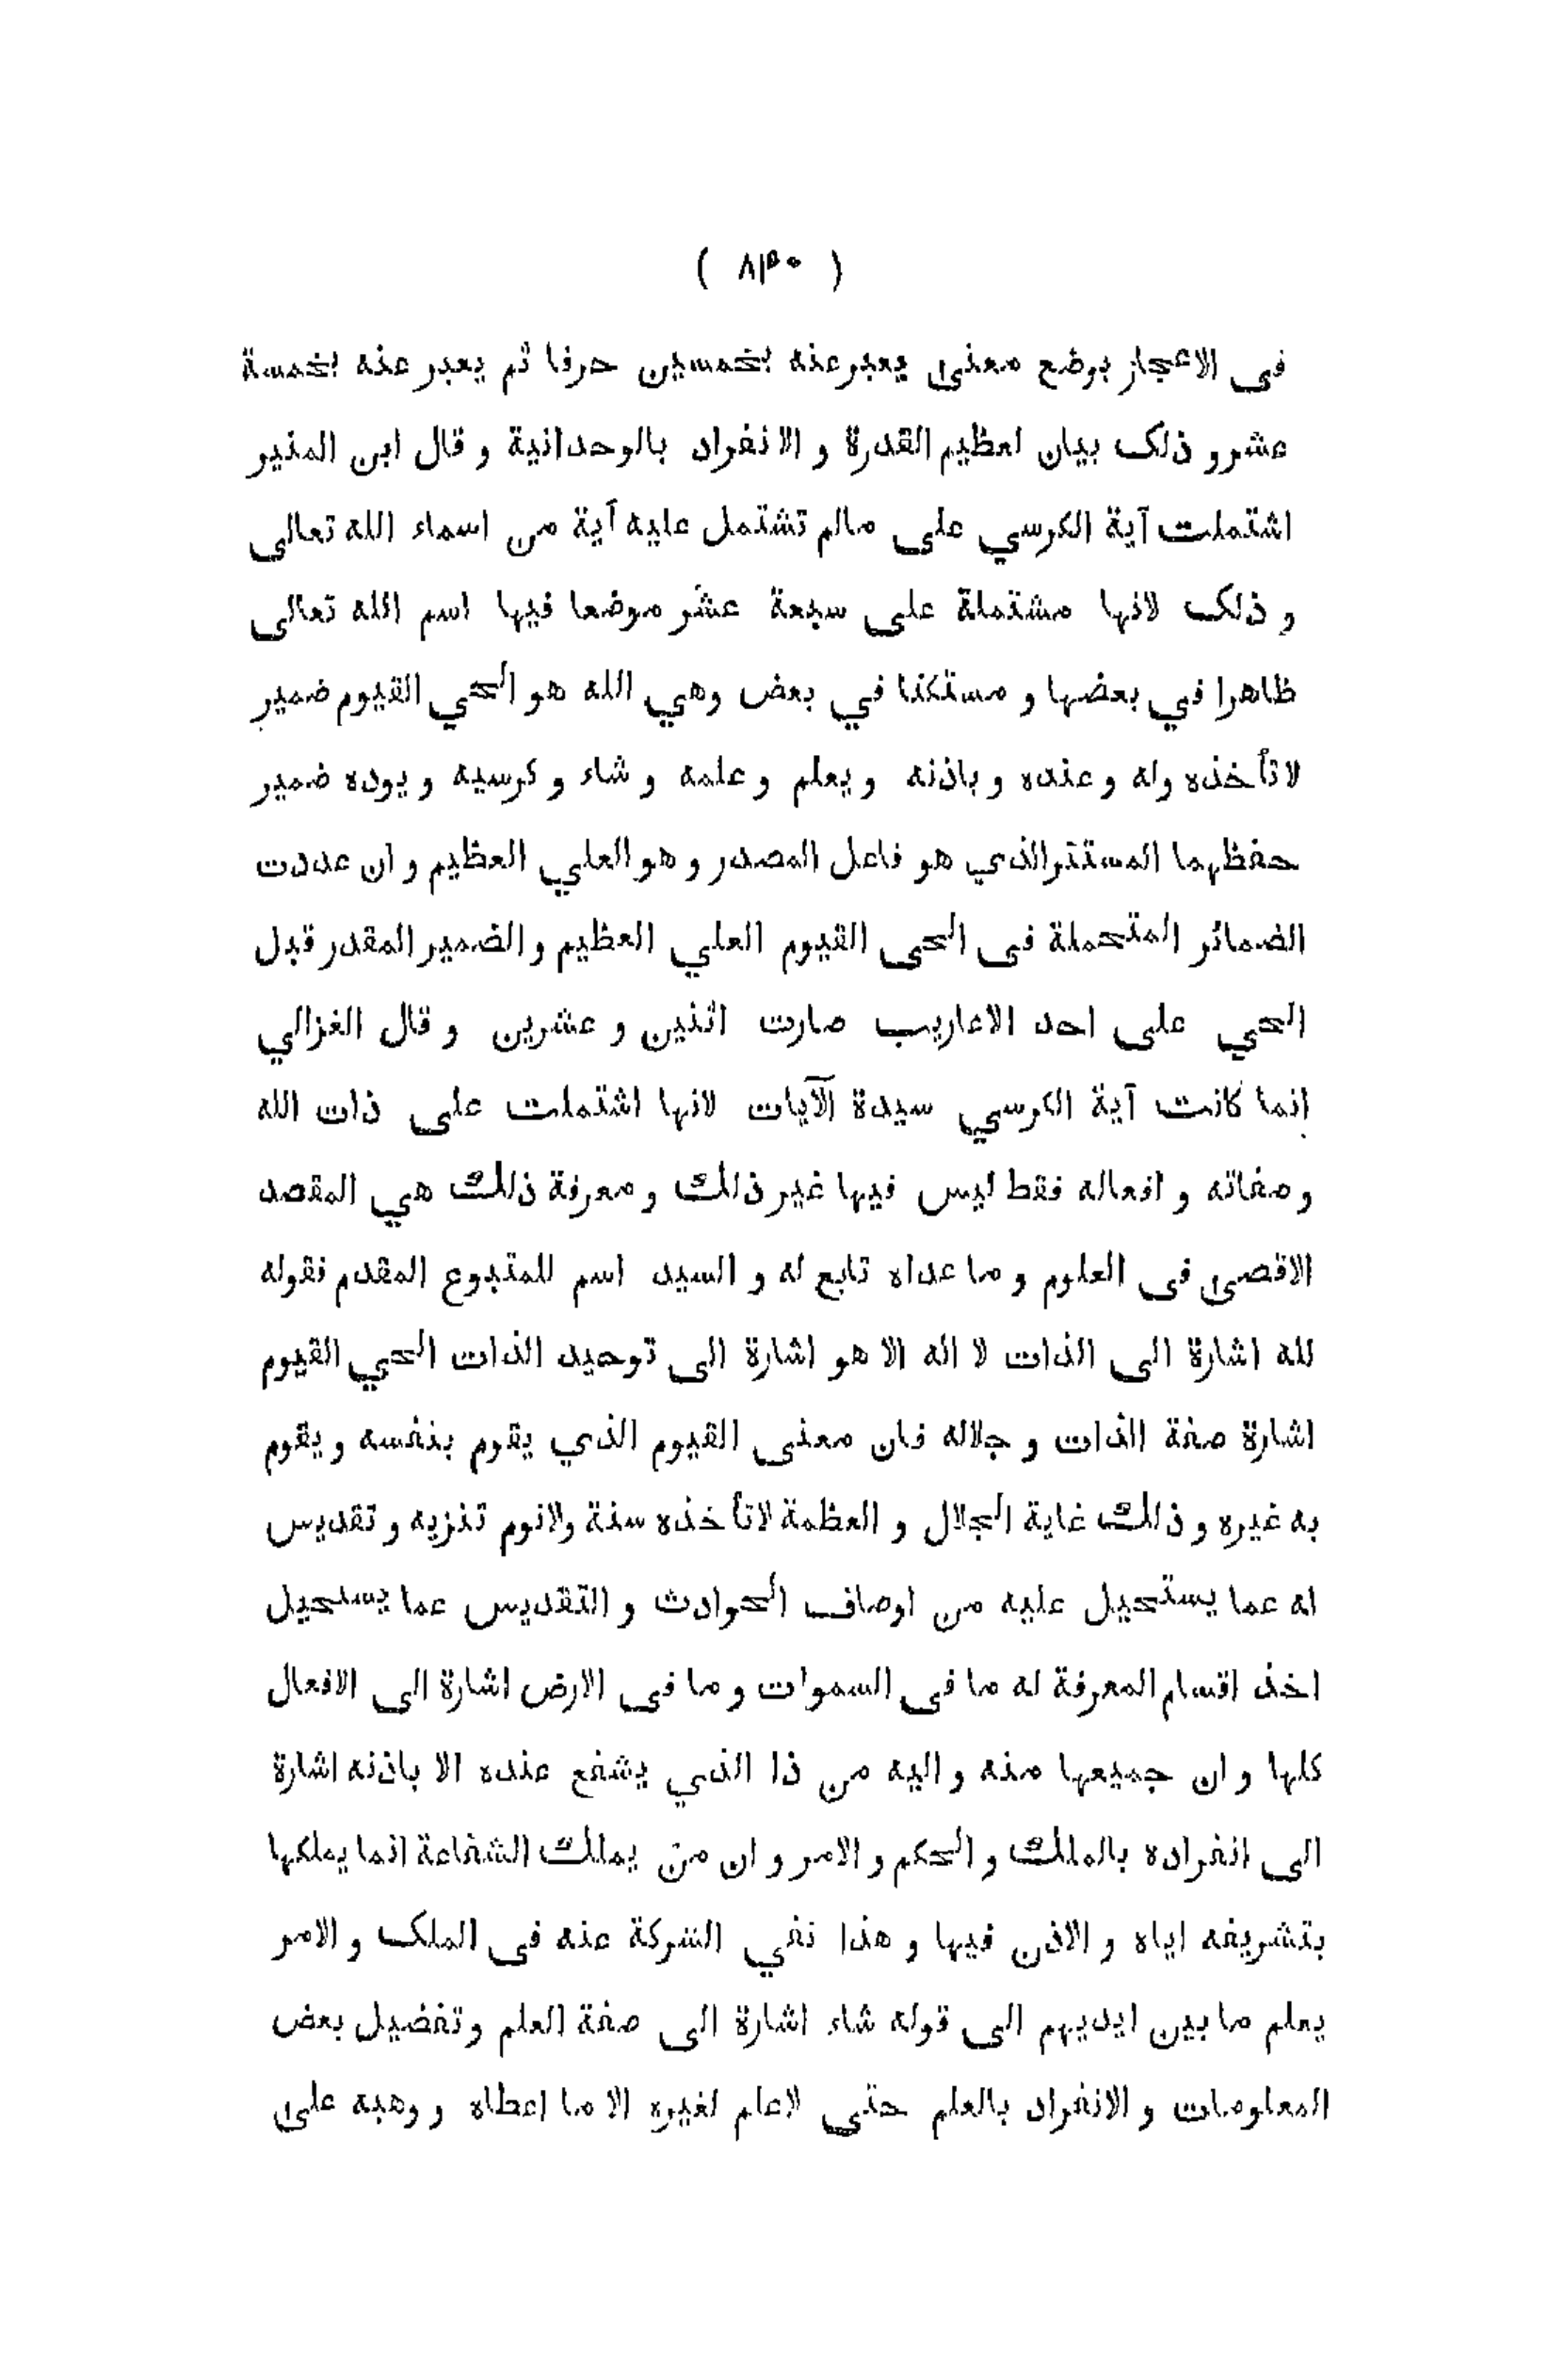 ( ٨٤٠ )
فى الاعجاز بوضع معنى يعبر عنه بخمسين حرفا ثم يعبر عنه بخمسة
عشر و ذلك بيان لعظيم القدرة و الانفراد بالوحدانية و قال ابن المنير
اشتملت آية الكرسي على مالم تشتمل عليه آية من اسماء الله تعالى
و ذلك لانها مشتملة على سبعة عشر موضعا فيها اسم الله تعالى
ظاهرا في بعضها و مستكنا في بعض وهي الله هو الحي القيوم ضمير
لاتأخذه وله و عنده و باذنه و يعلم و علمه و شاء و كرسيه و يوده ضمير
حفظهما المستتر الذي هو فاعل المصدر و هو العلي العظيم و ان عددت
الضمائر المتحملة فى الحى القيوم العلي العظيم و الضمير المقدر قبل
الحي على احد الاعاريب صارت اثنين و عشرين و قال الغزالي
إنما كانت آية الكرسي سيدة الآيات لانها اشتملت على ذات الله
و صفاته و افعاله فقط ليس فيها غير ذلك و معرفة ذلك هي المقصد
الاقصى فى العلوم و ما عداه تابع له و السيد اسم للمتبوع المقدم فقوله
لله اشارة الى الذات لا اله الا هو اشارة الى توحيد الذات الحي القيوم
اشارة صفة الذات و جلاله فان معنى القيوم الذي يقوم بنفسه و يقوم
به غيره و ذلك غاية الجلال و العظمة لاتأخذه سنة ولانوم تنزيه و تقديس
له عما يستحيل عليه من اوصاف الحوادث و التقديس عما يستحيل
اخذ اقسام المعرفة له ما فى السموات و ما فى الارض اشارة الى الافعال
كلها و ان جميعها منه و اليه من ذا الذي يشفع عنده الا باذنه اشارة
الى انفراده بالملك و الحكم و الامر و ان من يملك الشفاعة انما يملكها
بتشريفه اياه و الاذن فيها و هذا نفي الشركة عنه فى الملك و الامر
يعلم ما بين ايديهم الى قوله شاء اشارة الى صفة العلم و تفضيل بعض
المعلومات و الانفراد بالعلم حتى لاعلم لغيره الا ما اعطاه و وهبه على